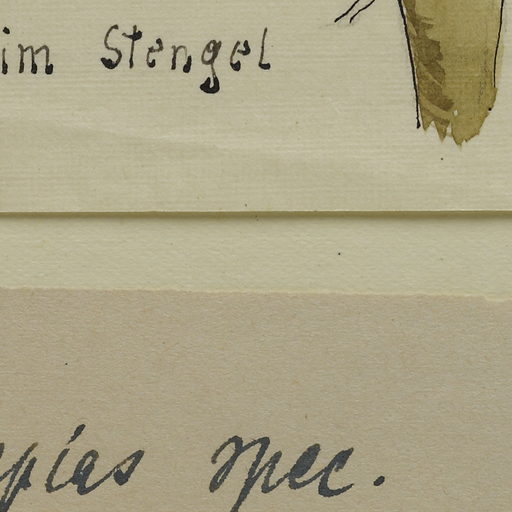 im Stengel
epias spec.